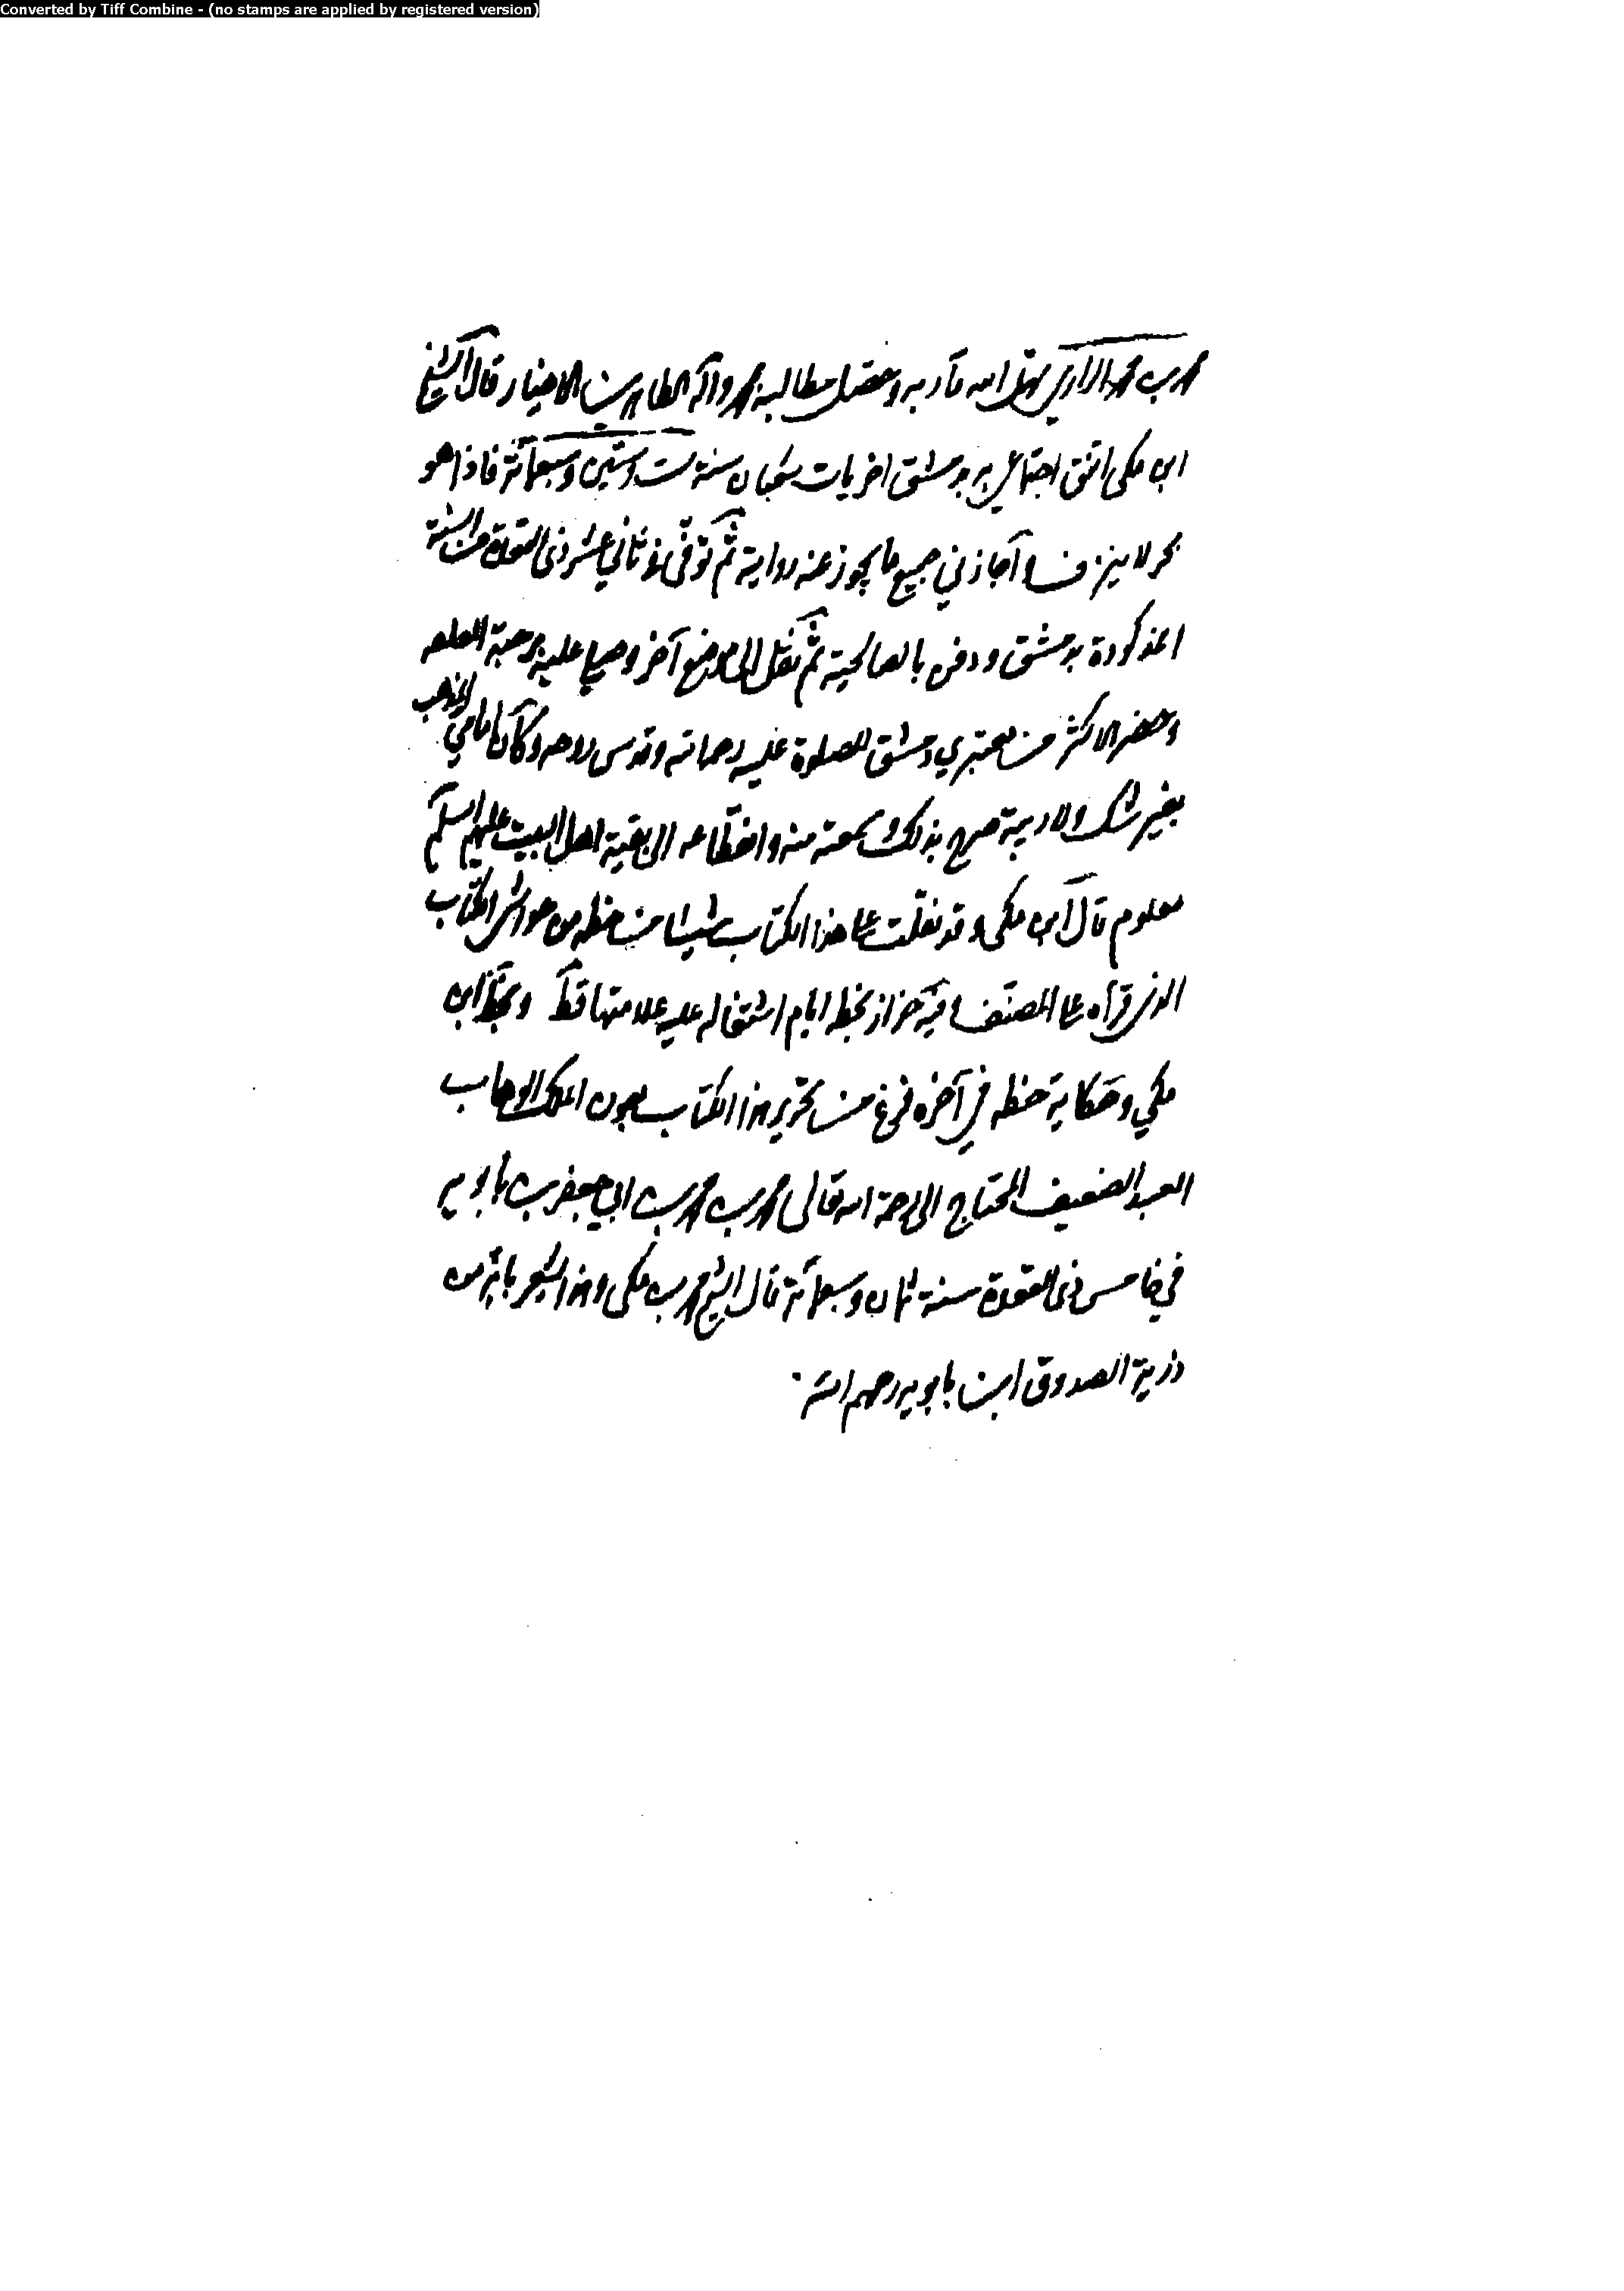 Converted by Tiff Combine - (no stamps are applied by registered version)
محمد بن محمد الرازي سهل الله مآربه وحصل مطالبه بمحمد وآله الطاهرين الاخيار قال الشيخ
ابن مكي اتفق اجتماعي به بدمشق اخريات شعبان سنة ست وستين وسبعمائة فاذا هو
بحر لا ينزف اجازني جميع ما يجوز عنه روايته ثم توفي في ثاني عشر ذى القعدة من السنة
المذكورة بدمشق ودفن بالصالحية ثم نقل الى موضع آخر وصلي عليه برحبة القلعه
وحضر الاكثر من معتبري دمشق للصلوة عليه رحمه الله وقدس روحه وكان امامي المذهب
بغير شك ولا ريبة صرح بذلك وسمعته منه وانقطاعه الى بقية اهل البيت عليهم السلام
معلوم قال ابن مكي وقد نقلت على هذا الكتاب شيئا من خطه من حواشي الكتاب
الذى قرأه على المصنف وفيه حزاز بخطه ايام اشتغاله عليه علامتها قط وبخط ابن
مكي وحكاية خطه في آخره فرغ من تحرير هذا الكتاب بعون الملك الوهاب
العبد الضعيف المحتاج الى رحمة الله تعالى محمد بن محمد بن ابي جعفر بن بابويه
في خامس ذى القعدة سنة ثمان وسبعمائة قال الشيخ محمد بن مكي وهذا يشعر بانه من
ذرية الصدوق ابن بابويه رحمهم الله